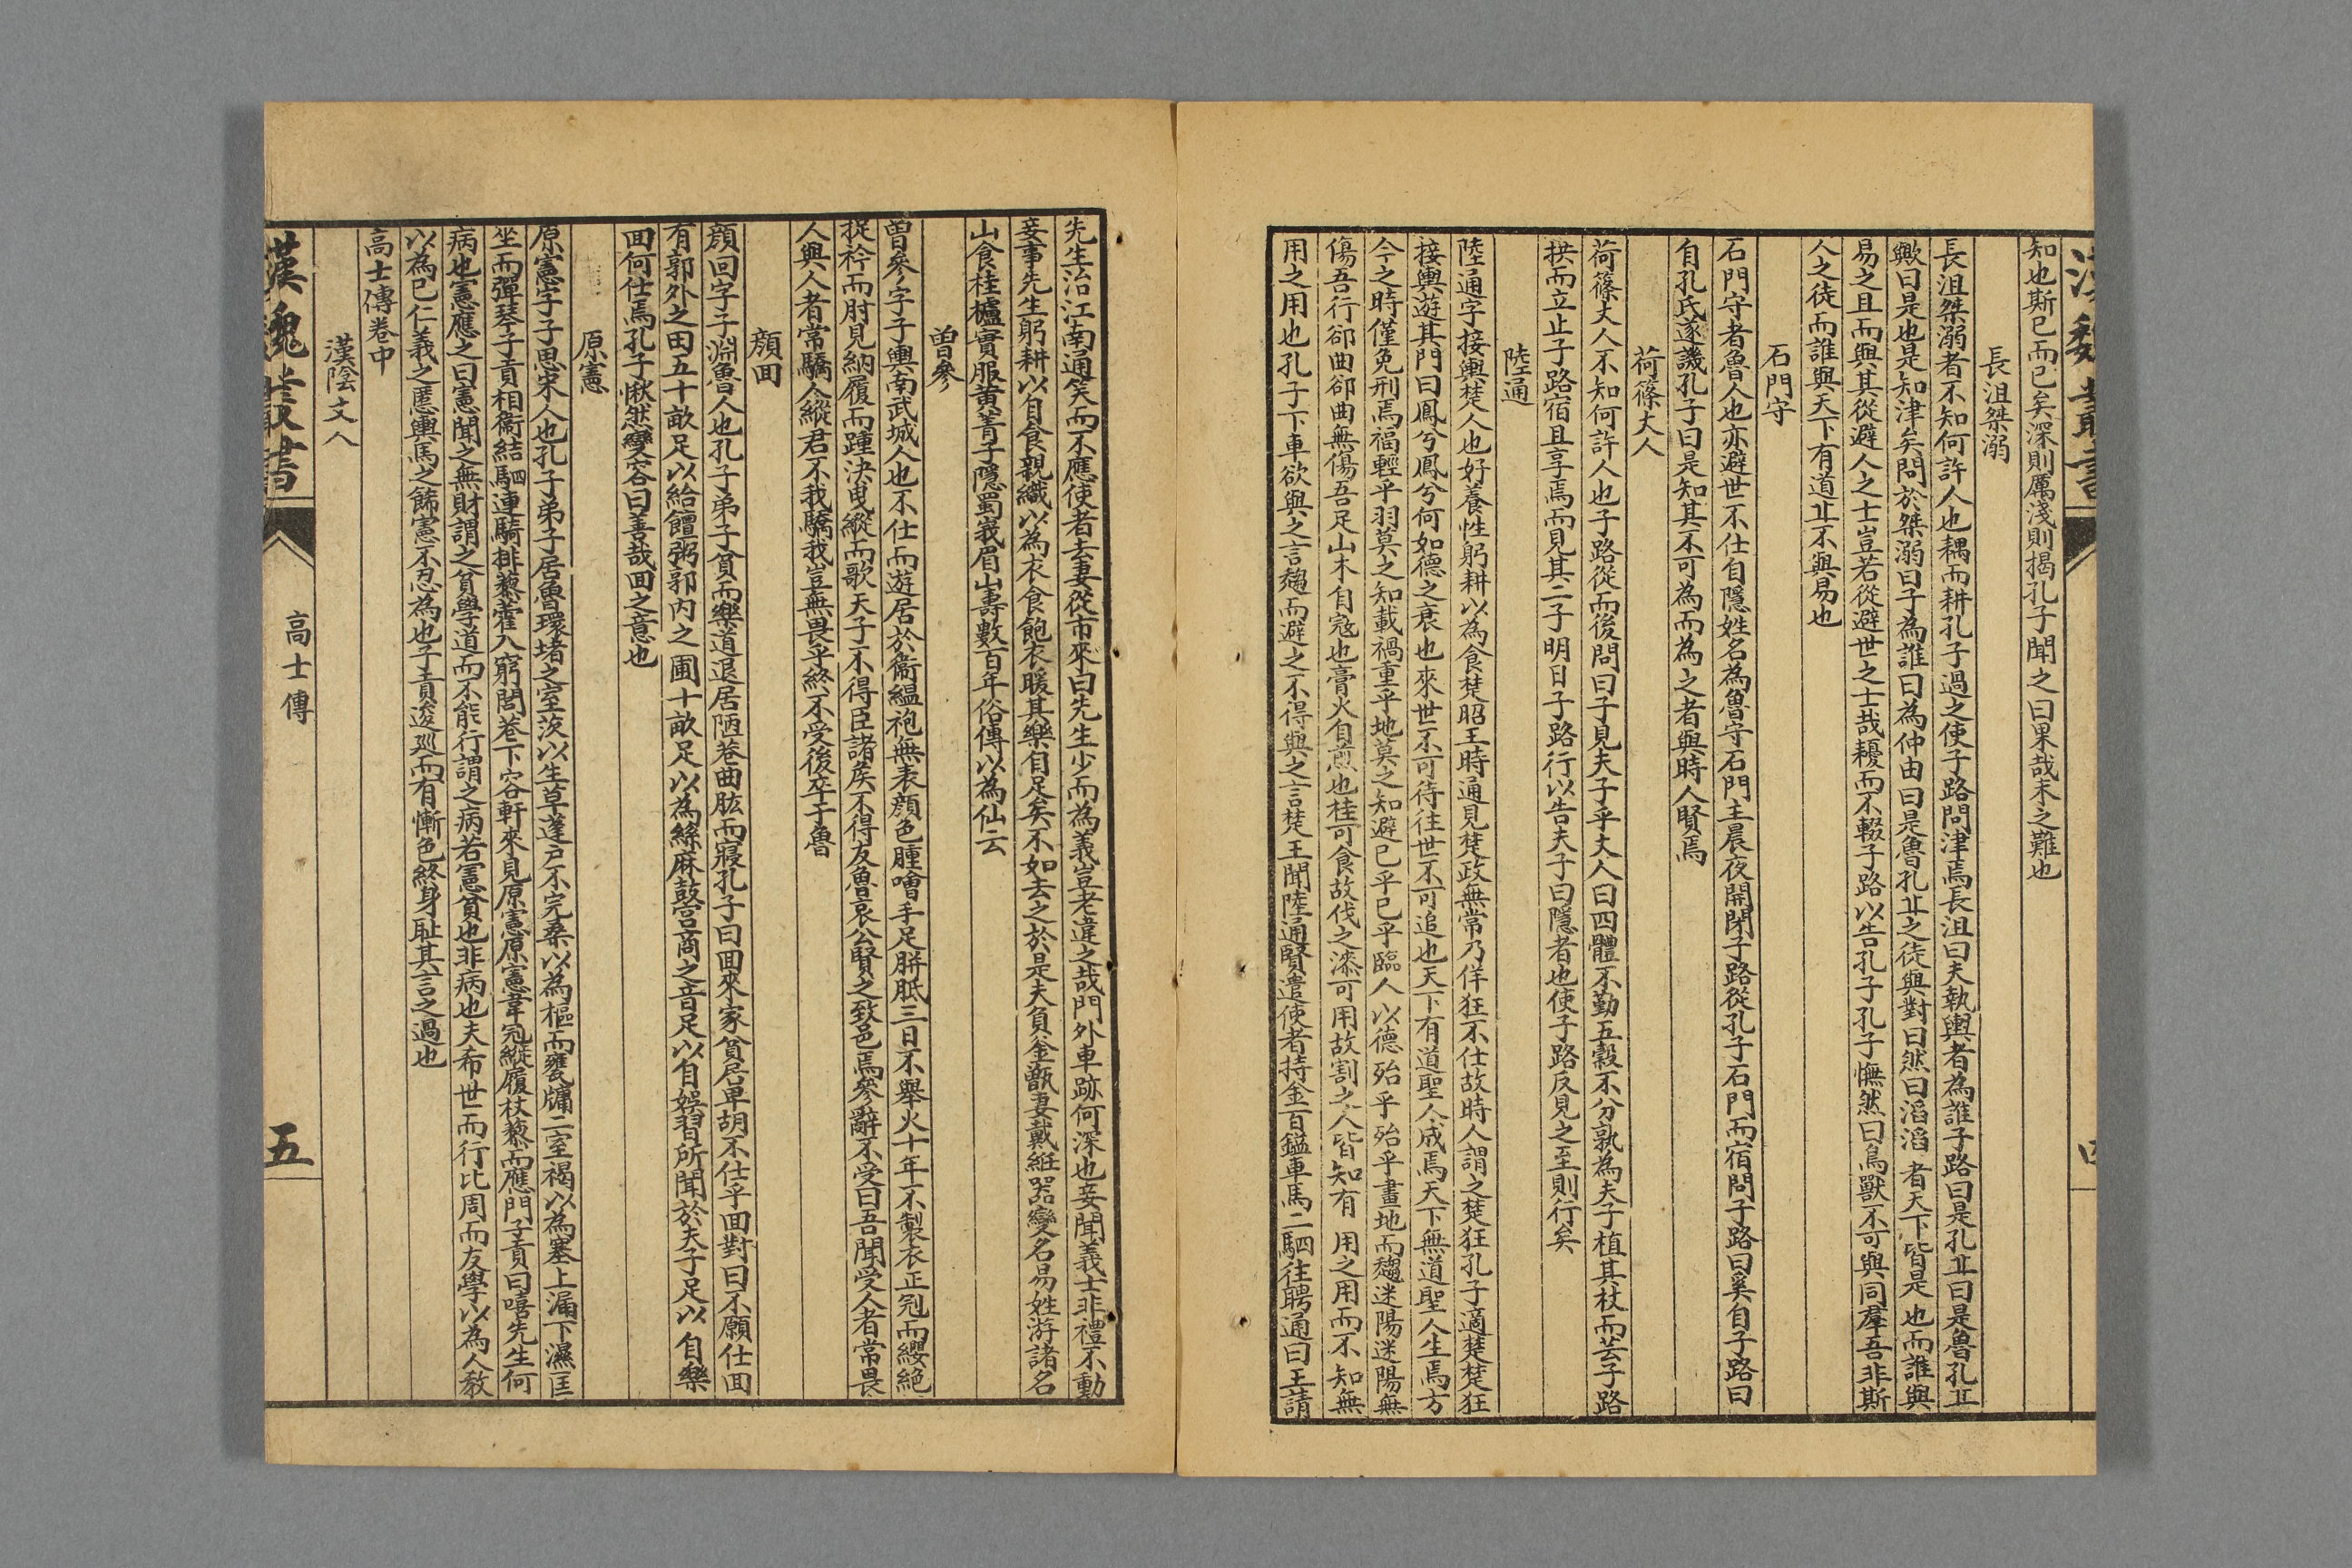 知也斯已而已矣深則厲淺則揭孔子聞之曰果哉末之難也
長沮桀溺
長沮桀溺者不知何許人也耦而耕孔子過之使子路問津焉長沮曰夫執輿者為誰子路曰是孔丘曰是魯孔丘
歟曰是也是知津矣問於桀溺曰子為誰曰為仲由曰是魯孔丘之徒與對曰然曰滔滔者天下皆是也而誰與
易之且而與其從避人之士豈若從避世之士哉耰而不輟子路以告孔子孔子憮然曰鳥獸不可與同羣吾非斯
人之徒而誰與天下有道丘不與易也
石門守
石門守者魯人也亦避世不仕自隱姓名為魯守石門主晨夜開閉子路從孔子石門而宿問子路曰奚自子路曰
自孔氏遂譏孔子曰是知其不可為而為之者與時人賢焉
荷篠丈人
荷篠丈人不知何許人也子路從而後問曰子見夫子乎丈人曰四體不勤五穀不分孰為夫子植其杖而芸子路
拱而立止子路宿且享焉而見其二子明日子路行以告夫子曰隱者也使子路反見之至則行矣
陸通
陸通字接輿楚人也好養性躬耕以為食楚昭王時通見楚政無常乃佯狂不仕故時人謂之楚狂孔子適楚楚狂
接輿遊其門曰鳳兮鳳兮何如德之衰也來世不可待往世不可追也天下有道聖人成焉天下無道聖人生焉方
今之時僅免刑焉福輕乎羽莫之知載禍重乎地莫之知避已乎已乎臨人以德殆乎殆乎畫地而趨迷陽迷陽無
傷吾行郤曲郤曲無傷吾足山木自寇也膏火自煎也桂可食故伐之漆可用故割之人皆知有用之用而不知無
用之用也孔子下車欲與之言趨而避之不得與之言楚王聞陸通賢遣使者持金百鎰車馬二駟往聘通曰王請
先生治江南通笑而不應使者去妻從市來曰先生少而為義豈老違之哉門外車跡何深也妾聞義士非禮不動
妾事先生躬耕以自食親織以為衣食飽衣暖其樂自足矣不如去之於是夫負釜甑妻戴紝器變名易姓游諸名
山食桂櫨實服黃菁子隱蜀峩眉山壽數百年俗傳以為仙云
曾參
曾參字子輿南武城人也不仕而遊居於衞縕袍無表顏色腫噲手足胼胝三日不舉火十年不製衣正冠而纓絕
捉衿而肘見納履而踵決曳縰而歌天子不得臣諸矦不得友魯哀公賢之致邑焉參辭不受曰吾聞受人者常畏
人與人者常驕人縱君不我驕我豈無畏乎終不受後卒于魯
顏囬
顏回字子淵魯人也孔子弟子貧而樂道退居陋巷曲肱而寢孔子曰囬來家貧居卑胡不仕乎囬對曰不願仕囬
有郭外之田五十畝足以給饘粥郭內之圃十畝足以為絲麻鼓宮商之音足以自娛習所聞於夫子足以自樂
囬何仕焉孔子愀然變容曰善哉囬之意也
原憲
原憲字子思宋人也孔子弟子居魯環堵之室茨以生草蓬戶不完桑以為樞而甕牖二室褐以為塞上漏下濕匡
坐而彈琴子貢相衞結駟連騎排藜藿入窮閭巷不容軒來見原憲原憲韋冠縰履杖藜而應門子貢曰嘻先生何
病也憲應之曰憲聞之無財謂之貧學道而不能行謂之病若憲貧也非病也夫希世而行比周而友學以為人敎
以為已仁義之慝輿馬之飾憲不忍為也子貢逡巡而有慚色終身耻其言之過也
高士傳卷中
漢陰丈人
漢魏叢書
高士傳
五